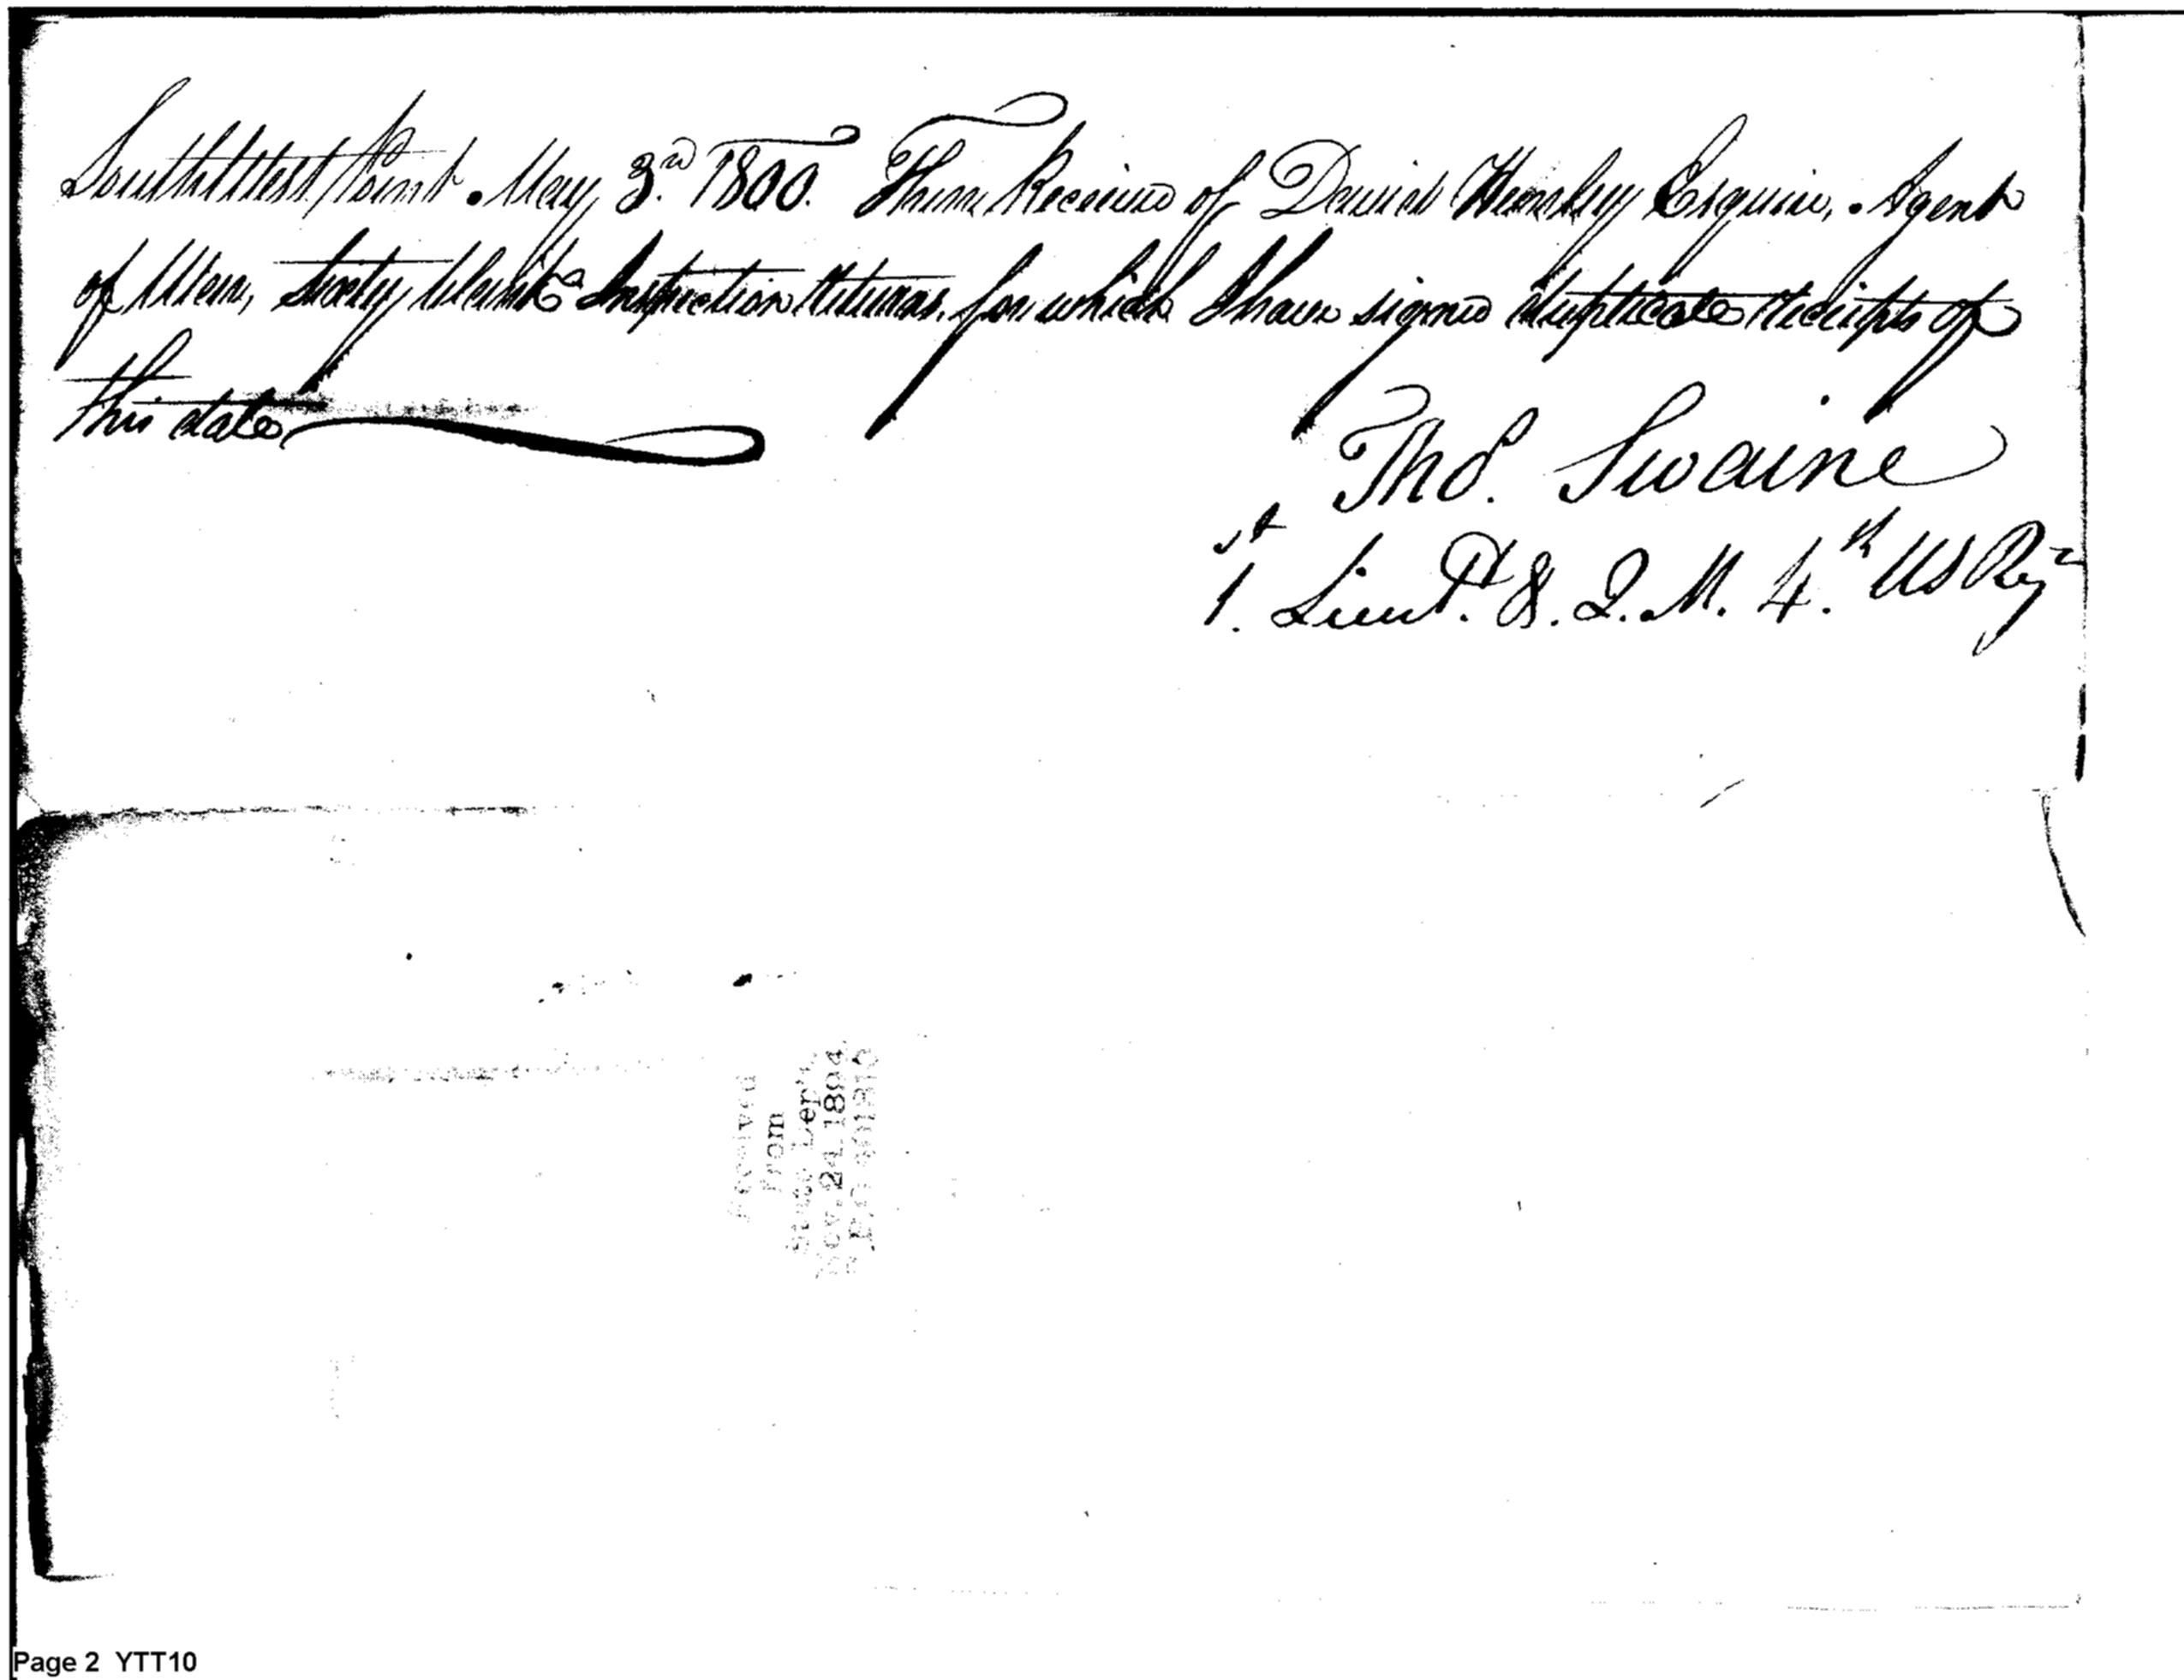 SouthWest Point. May 3rd 1800. I have Received of David Henley Esquire, Agent
of War, Sixty blank Inspection Returns, for which I have signed duplicate Receipts of
this date
Tho.s Swaine
1st Lieut. & Q. M. 4th US Reg
Received
From
State Dep't
Nov. 24 1894
Page 2 YTT10